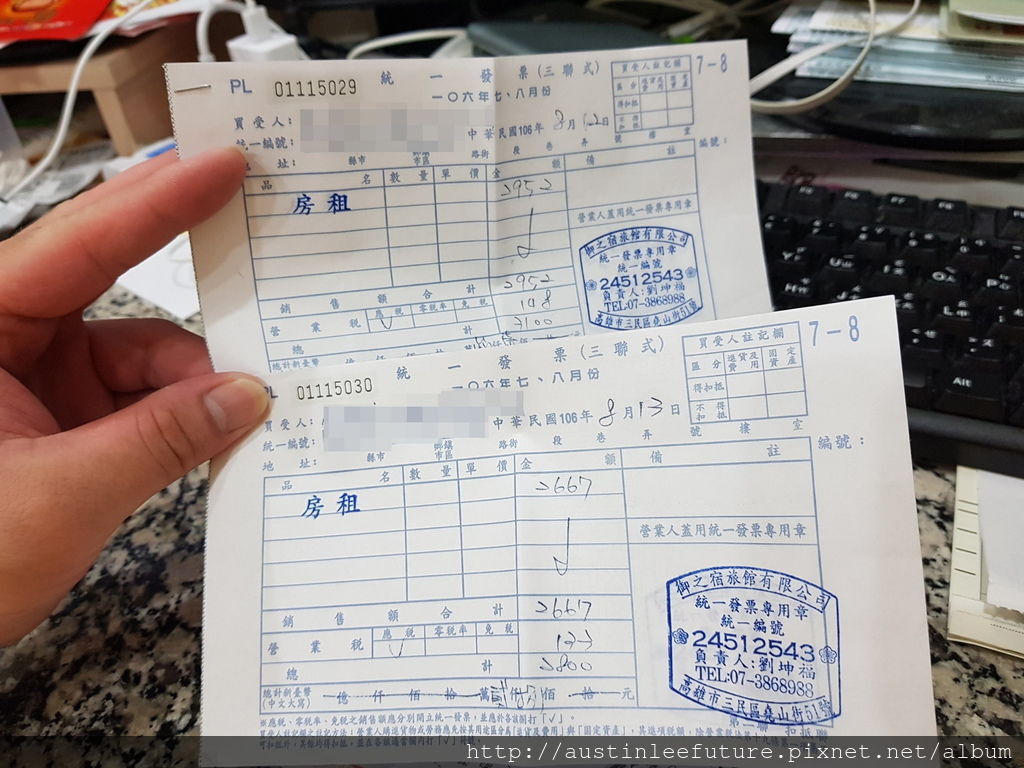 PL 01115029 統一發票(三聯式) 7-8
一〇六年七、八月份
買受人註記欄
區分 進貨及費用 固定資產
得扣抵
不得扣抵
買受人:
統一編號: 中華民國106年8月12日
地址: 縣市 鄉鎮市區 路街 段 巷 弄 號 樓 室 編號:
品名 數量 單價 金額 備註
房租 2952
營業人蓋用統一發票專用章
銷售額合計 2952
營業稅 應稅 ✓ 零稅率 免稅 148
總計 3100
總計新臺幣
御之宿旅館有限公司
統一發票專用章
統一編號
24512543
負責人:劉坤福
TEL:07-3868988
高雄市三民區堯山街51號
PL 01115030 統一發票(三聯式) 7-8
一〇六年七、八月份
買受人註記欄
區分 進貨及費用 固定資產
得扣抵
不得扣抵
買受人:
統一編號: 中華民國106年8月13日
地址: 縣市 鄉鎮市區 路街 段 巷 弄 號 樓 室 編號:
品名 數量 單價 金額 備註
房租 2667
營業人蓋用統一發票專用章
銷售額合計 2667
營業稅 應稅 ✓ 零稅率 免稅 133
總計 2800
總計新臺幣(中文大寫) 億 仟 佰 拾 萬 貳仟 捌佰 拾 元
御之宿旅館有限公司
統一發票專用章
統一編號
24512543
負責人:劉坤福
TEL:07-3868988
高雄市三民區堯山街51號
※應稅、零稅率、免稅之銷售額應分別開立統一發票,並應於各該欄打「✓」。
Alt
http://austinleefuture.pixnet.net/album